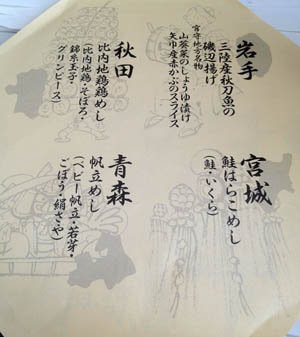 岩手
三陸産秋刀魚の
磯辺揚げ
宮守地方名物
山葵菜のしょうゆ漬け
矢巾産赤かぶのスライス
秋田
比内地鶏鶏めし
（比内地鶏・そぼろ・
錦糸玉子
グリンピース）
宮城
鮭はらこめし
（鮭・いくら）
青森
帆立めし
（ベビー帆立・若芽・
ごぼう・絹さや）